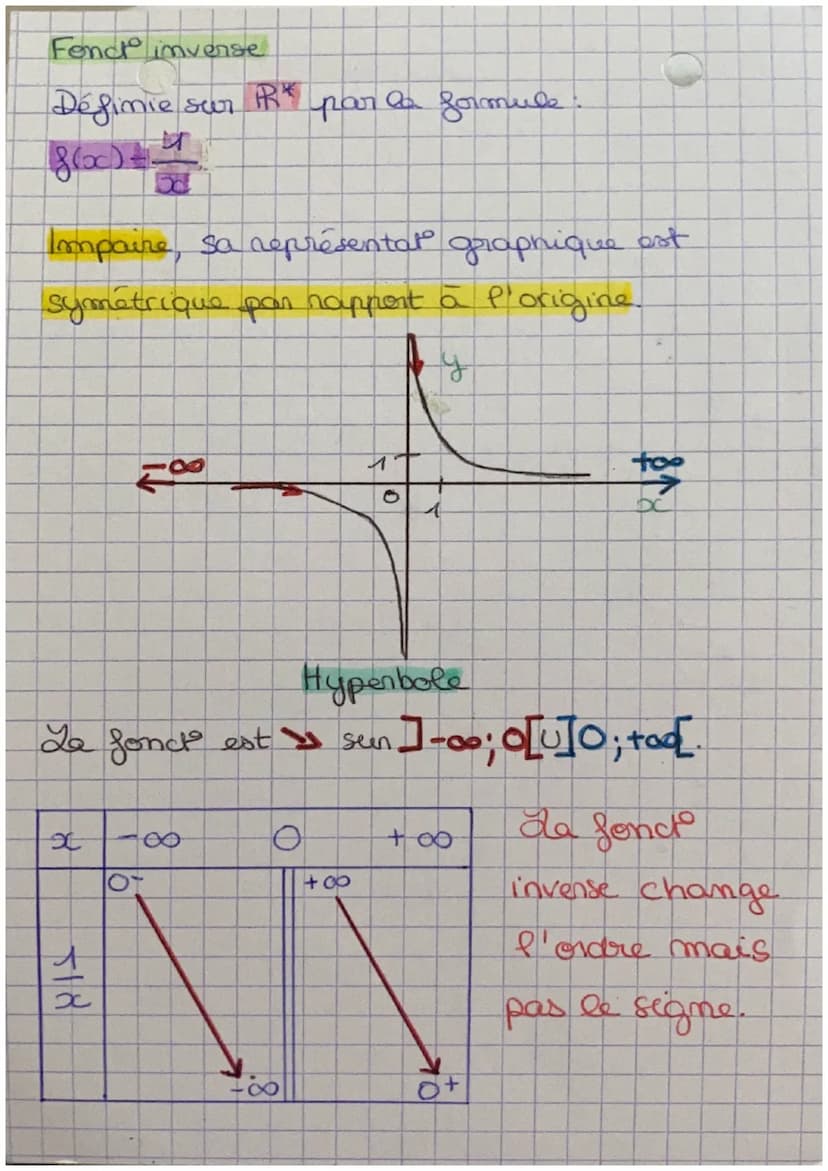 Fonct° inverse
Définie sur ℝ* par la formule :
f(x) = 1/x
Impaire, sa représentat° graphique est
symétrique par rapport à l'origine.
y
-∞ 1 +∞
0 1 x
Hyperbole
La fonct° est ↘ sur ]-∞; 0[∪]0; +∞[.
x -∞ 0 + ∞
0- +∞
1/x
-∞ 0+
La fonct°
inverse change
l'ordre mais
pas le signe.